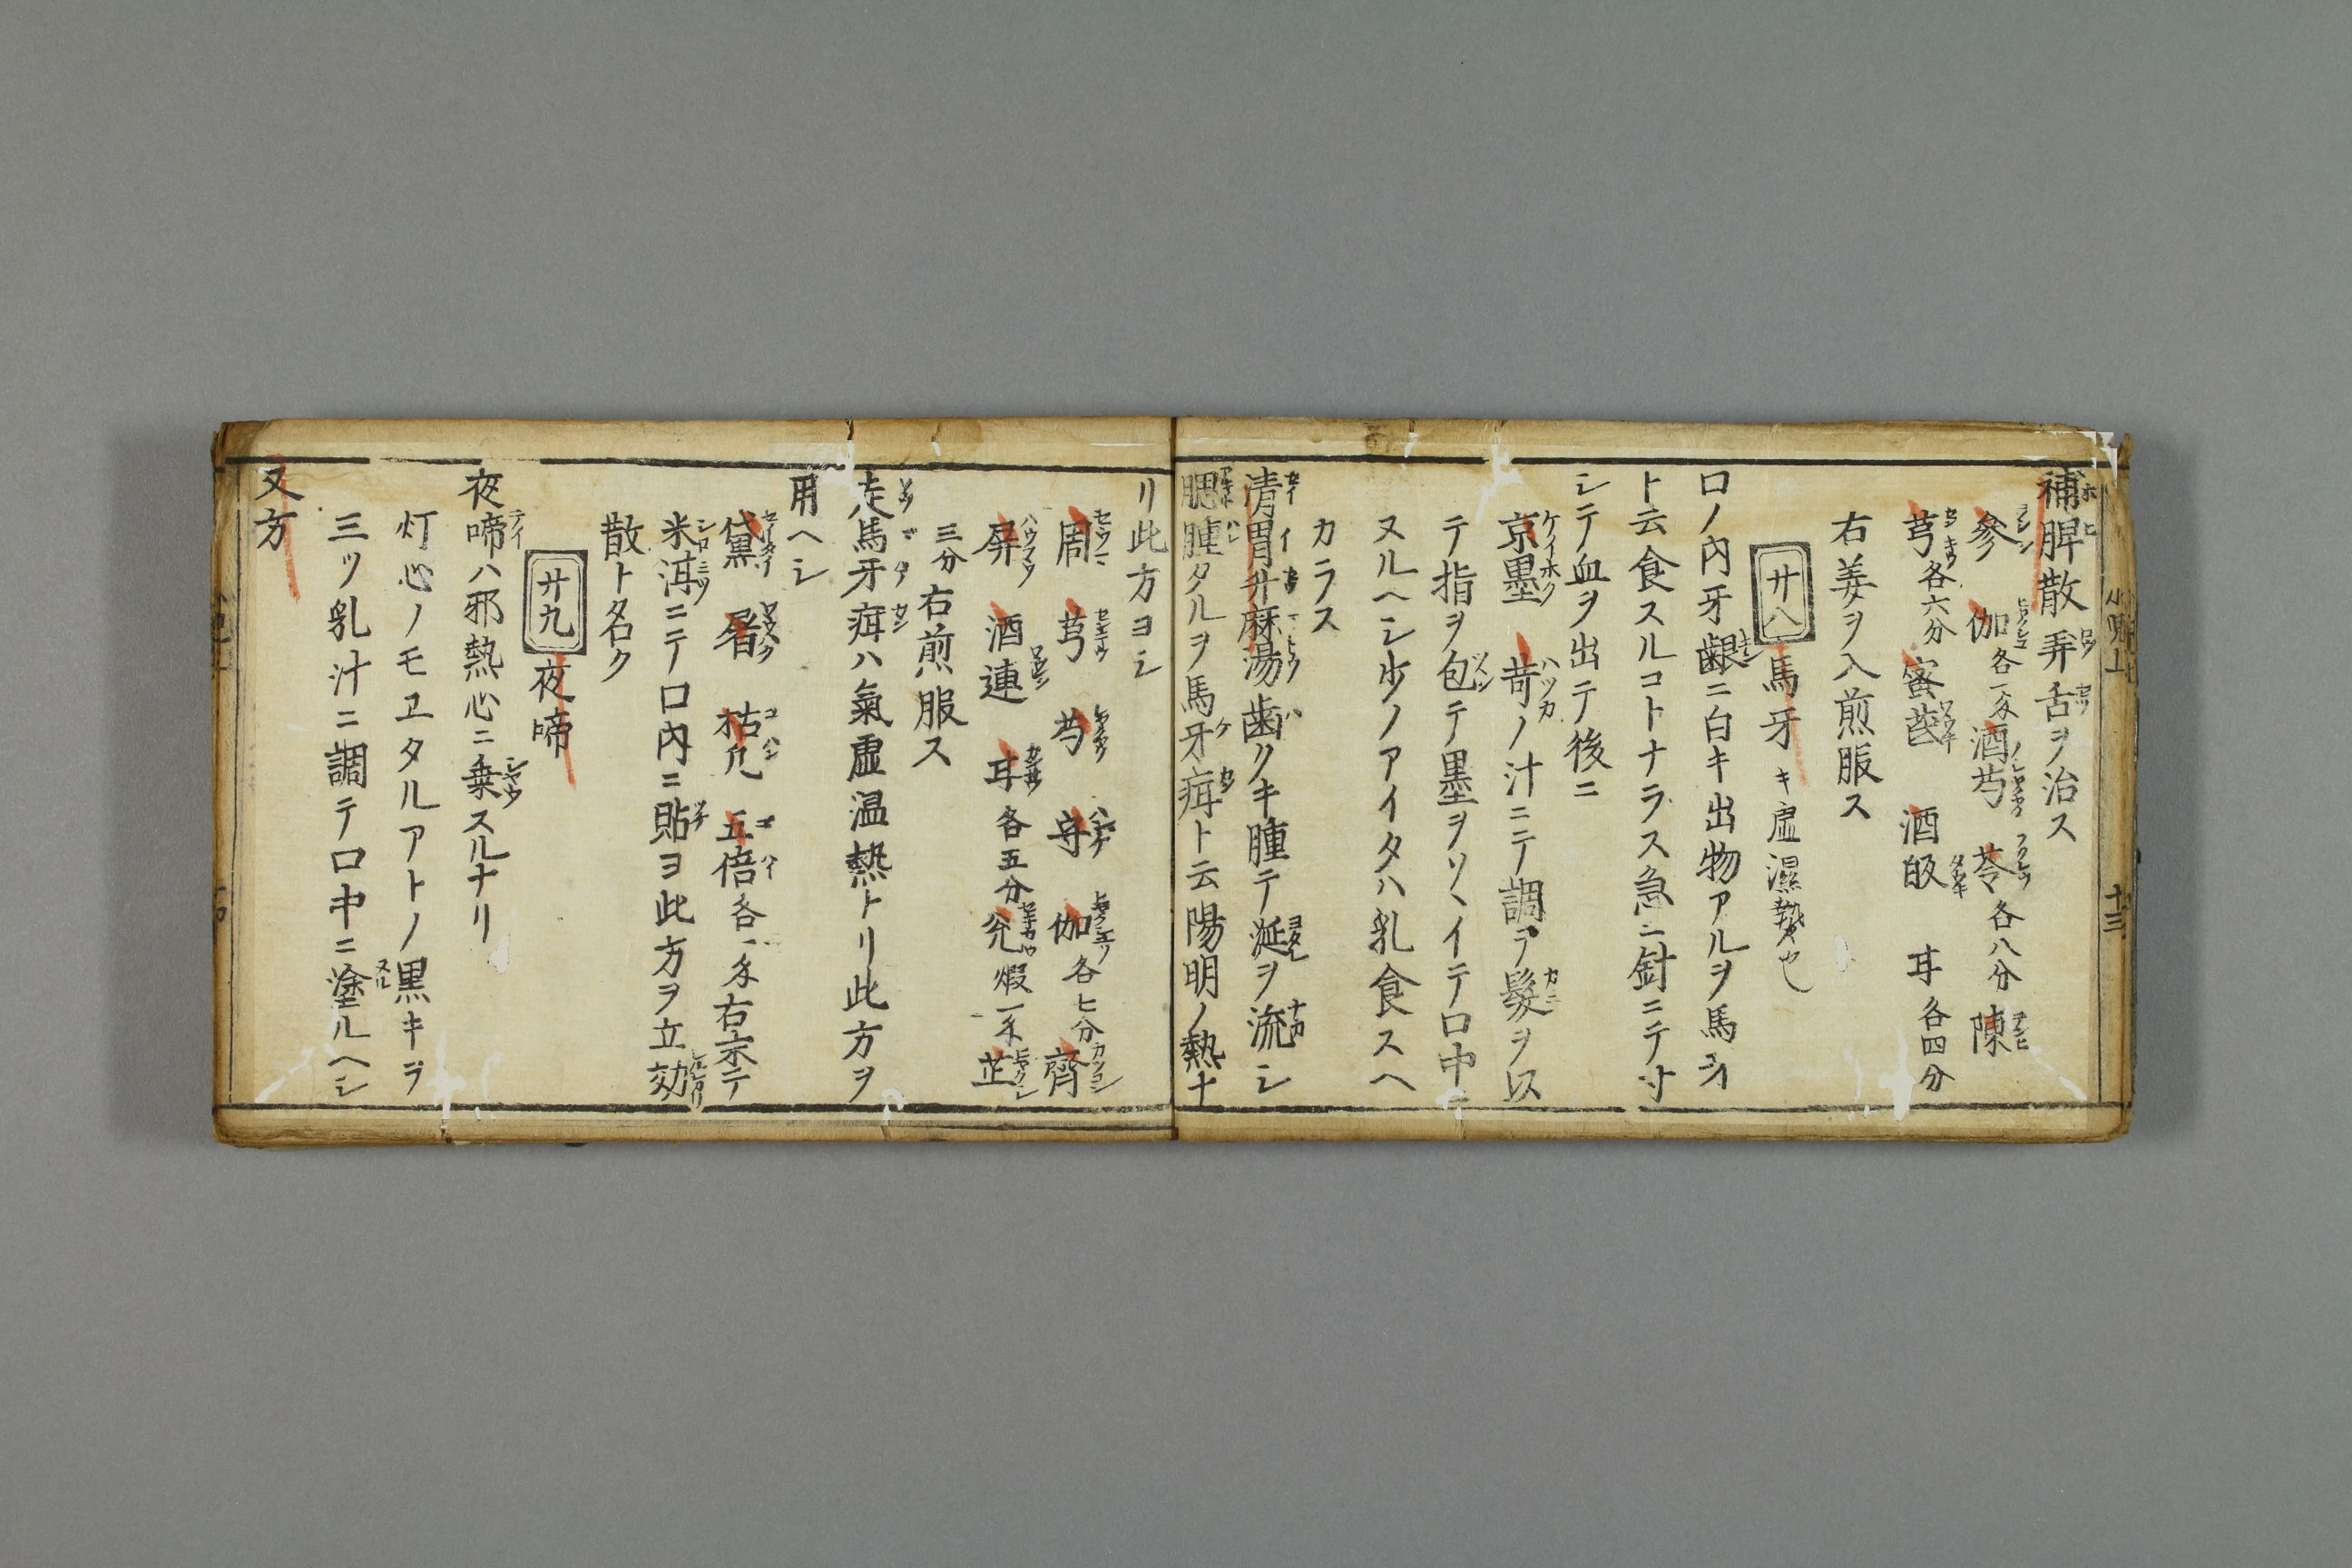 補脾散弄舌ヲ治ス
參 伽各一匁酒芍 苓各八分 陳
芎各六分 蜜茋 酒皈 耳各四分
右姜ヲ入煎服ス
廿八 馬牙 キ虚濕熱也
口ノ内牙齦ニ白キ出物アルヲ馬牙
ト云食スルコトナラス急ニ針ニテ寸
シテ血ヲ出テ後ニ
京墨 苛ノ汁ニテ調ヲ髮ヲ以
テ指ヲ包テ墨ヲソヽイテ口中ニ
ヌルヘシ少ノアイタハ乳食スヘ
カラス
清胃升麻湯歯クキ腫テ涎ヲ流シ
腮腫タルヲ馬牙疳ト云陽明ノ熱ナ
リ此方ヨシ
周 芎 芍 守 伽各七分 齊
屏 酒連 耳各五分 煆一匁 芷
三分右煎服ス
走馬牙疳ハ氣虚温熱トリ此方ヲ
用ヘシ
黛 枯凡 五倍各一匁右末テ
米泔ニテ口内ニ貼ヨ此方ヲ立効
散ト名ク
廿九 夜啼
夜啼ハ邪熱心ニ乗スルナリ
灯心ノモヱタルアトノ黒キヲ
三ツ乳汁ニ調テ口中ニ塗ルヘシ
又方
小兒上
十三